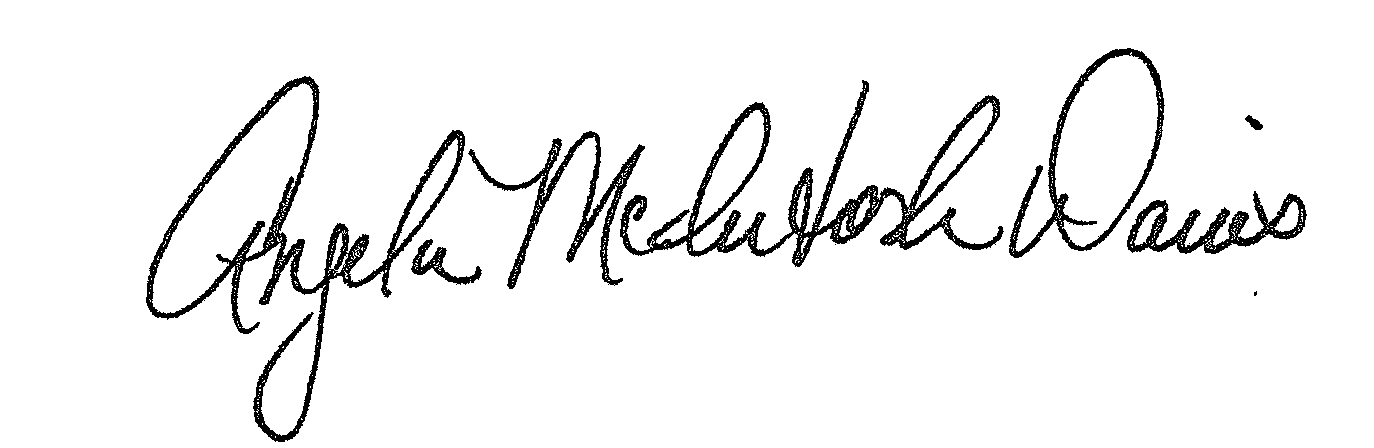 Angela McIntosh Davis